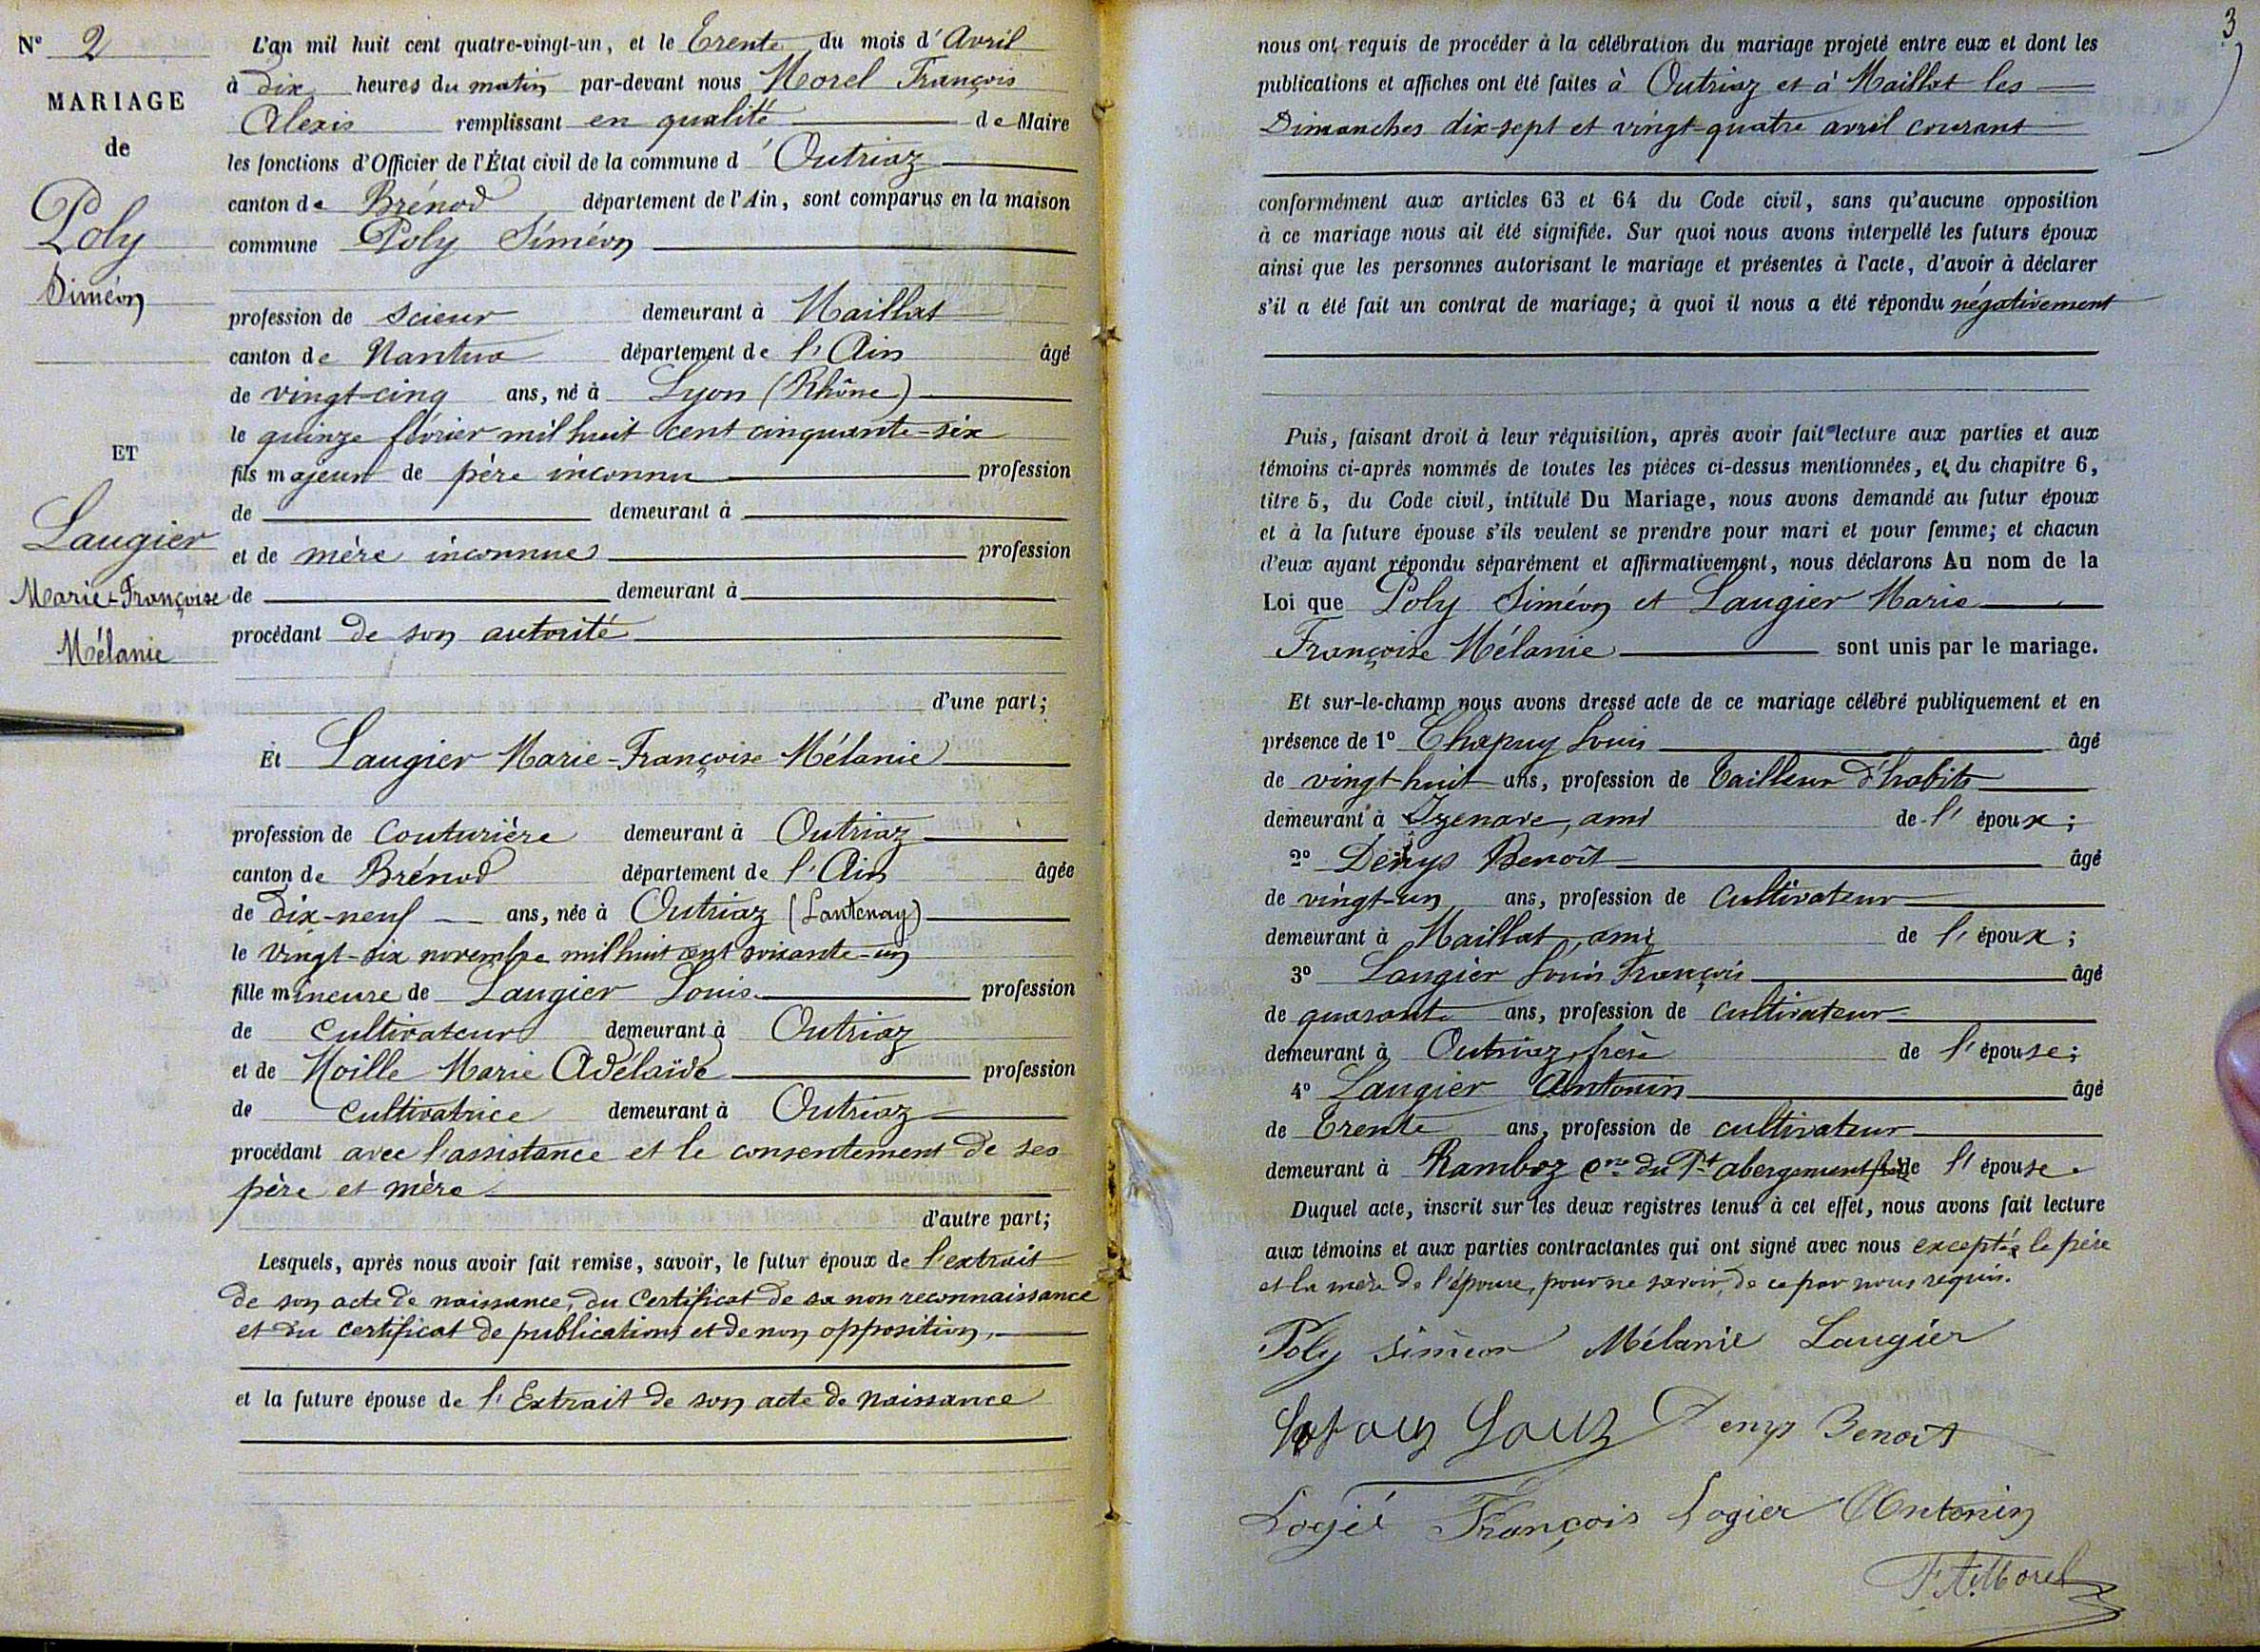 N° 2
MARIAGE
de
Poly
Siméon
ET
Laugier
Marie-Françoise
Mélanie
L'an mil huit cent quatre-vingt-un, et le Trente du mois d'Avril
à dix heures du matin par-devant nous Morel François
Alexis remplissant en qualité de Maire
les fonctions d'Officier de l'État civil de la commune d'Outriaz
canton de Brénod département de l'Ain, sont comparus en la maison
commune Poly Siméon
profession de scieur demeurant à Maillat
canton de Nantua département de l'Ain âgé
de vingt-cinq ans, né à Lyon (Rhône)
le quinze février mil huit cent cinquante-six
fils majeur de père inconnu profession
de demeurant à
et de mère inconnue profession
de demeurant à
procédant de son autorité
d'une part;
Et Laugier Marie-Françoise Mélanie
profession de Couturière demeurant à Outriaz
canton de Brénod département de l'Ain âgée
de dix-neuf ans, née à Outriaz (Lantenay)
le vingt-six novembre mil huit cent soixante-un
fille mineure de Laugier Louis profession
de cultivateur demeurant à Outriaz
et de Moille Marie Adélaïde profession
de cultivatrice demeurant à Outriaz
procédant avec l'assistance et le consentement de ses
père et mère
d'autre part;
Lesquels, après nous avoir fait remise, savoir, le futur époux de l'extrait
de son acte de naissance, du Certificat de sa non reconnaissance
et du certificat de publications et de non opposition,
et la future épouse de l'Extrait de son acte de Naissance
3
nous ont requis de procéder à la célébration du mariage projeté entre eux et dont les
publications et affiches ont été faites à Outriaz et à Maillat les
Dimanches dix-sept et vingt-quatre avril courant
conformément aux articles 63 et 64 du Code civil, sans qu'aucune opposition
à ce mariage nous ait été signifiée. Sur quoi nous avons interpellé les futurs époux
ainsi que les personnes autorisant le mariage et présentes à l'acte, d'avoir à déclarer
s'il a été fait un contrat de mariage; à quoi il nous a été répondu négativement
Puis, faisant droit à leur réquisition, après avoir fait lecture aux parties et aux
témoins ci-après nommés de toutes les pièces ci-dessus mentionnées, et du chapitre 6,
titre 5, du Code civil, intitulé Du Mariage, nous avons demandé au futur époux
et à la future épouse s'ils veulent se prendre pour mari et pour femme; et chacun
d'eux ayant répondu séparément et affirmativement, nous déclarons Au nom de la
Loi que Poly Siméon et Laugier Marie
Françoise Mélanie sont unis par le mariage.
Et sur-le-champ nous avons dressé acte de ce mariage célébré publiquement et en
présence de 1° Chapuy Louis âgé
de vingt-huit ans, profession de Tailleur d'habits
demeurant à Izenave, ami de l'époux;
2° Denys Benoît âgé
de vingt-un ans, profession de Cultivateur
demeurant à Maillat, ami de l'époux;
3° Laugier Louis François âgé
de quarante ans, profession de cultivateur
demeurant à Outriaz, frère de l'épouse;
4° Laugier Antonin âgé
de Trente ans, profession de cultivateur
demeurant à Ramboz cne du Pt abergement frère de l'épouse.
Duquel acte, inscrit sur les deux registres tenus à cet effet, nous avons fait lecture
aux témoins et aux parties contractantes qui ont signé avec nous exceptés le père
et la mère de l'épouse, pour ne savoir, de ce par nous requis.
Poly siméon Mélanie Laugier
Denys Benoit
François Logier Antonin
F. A. Morel